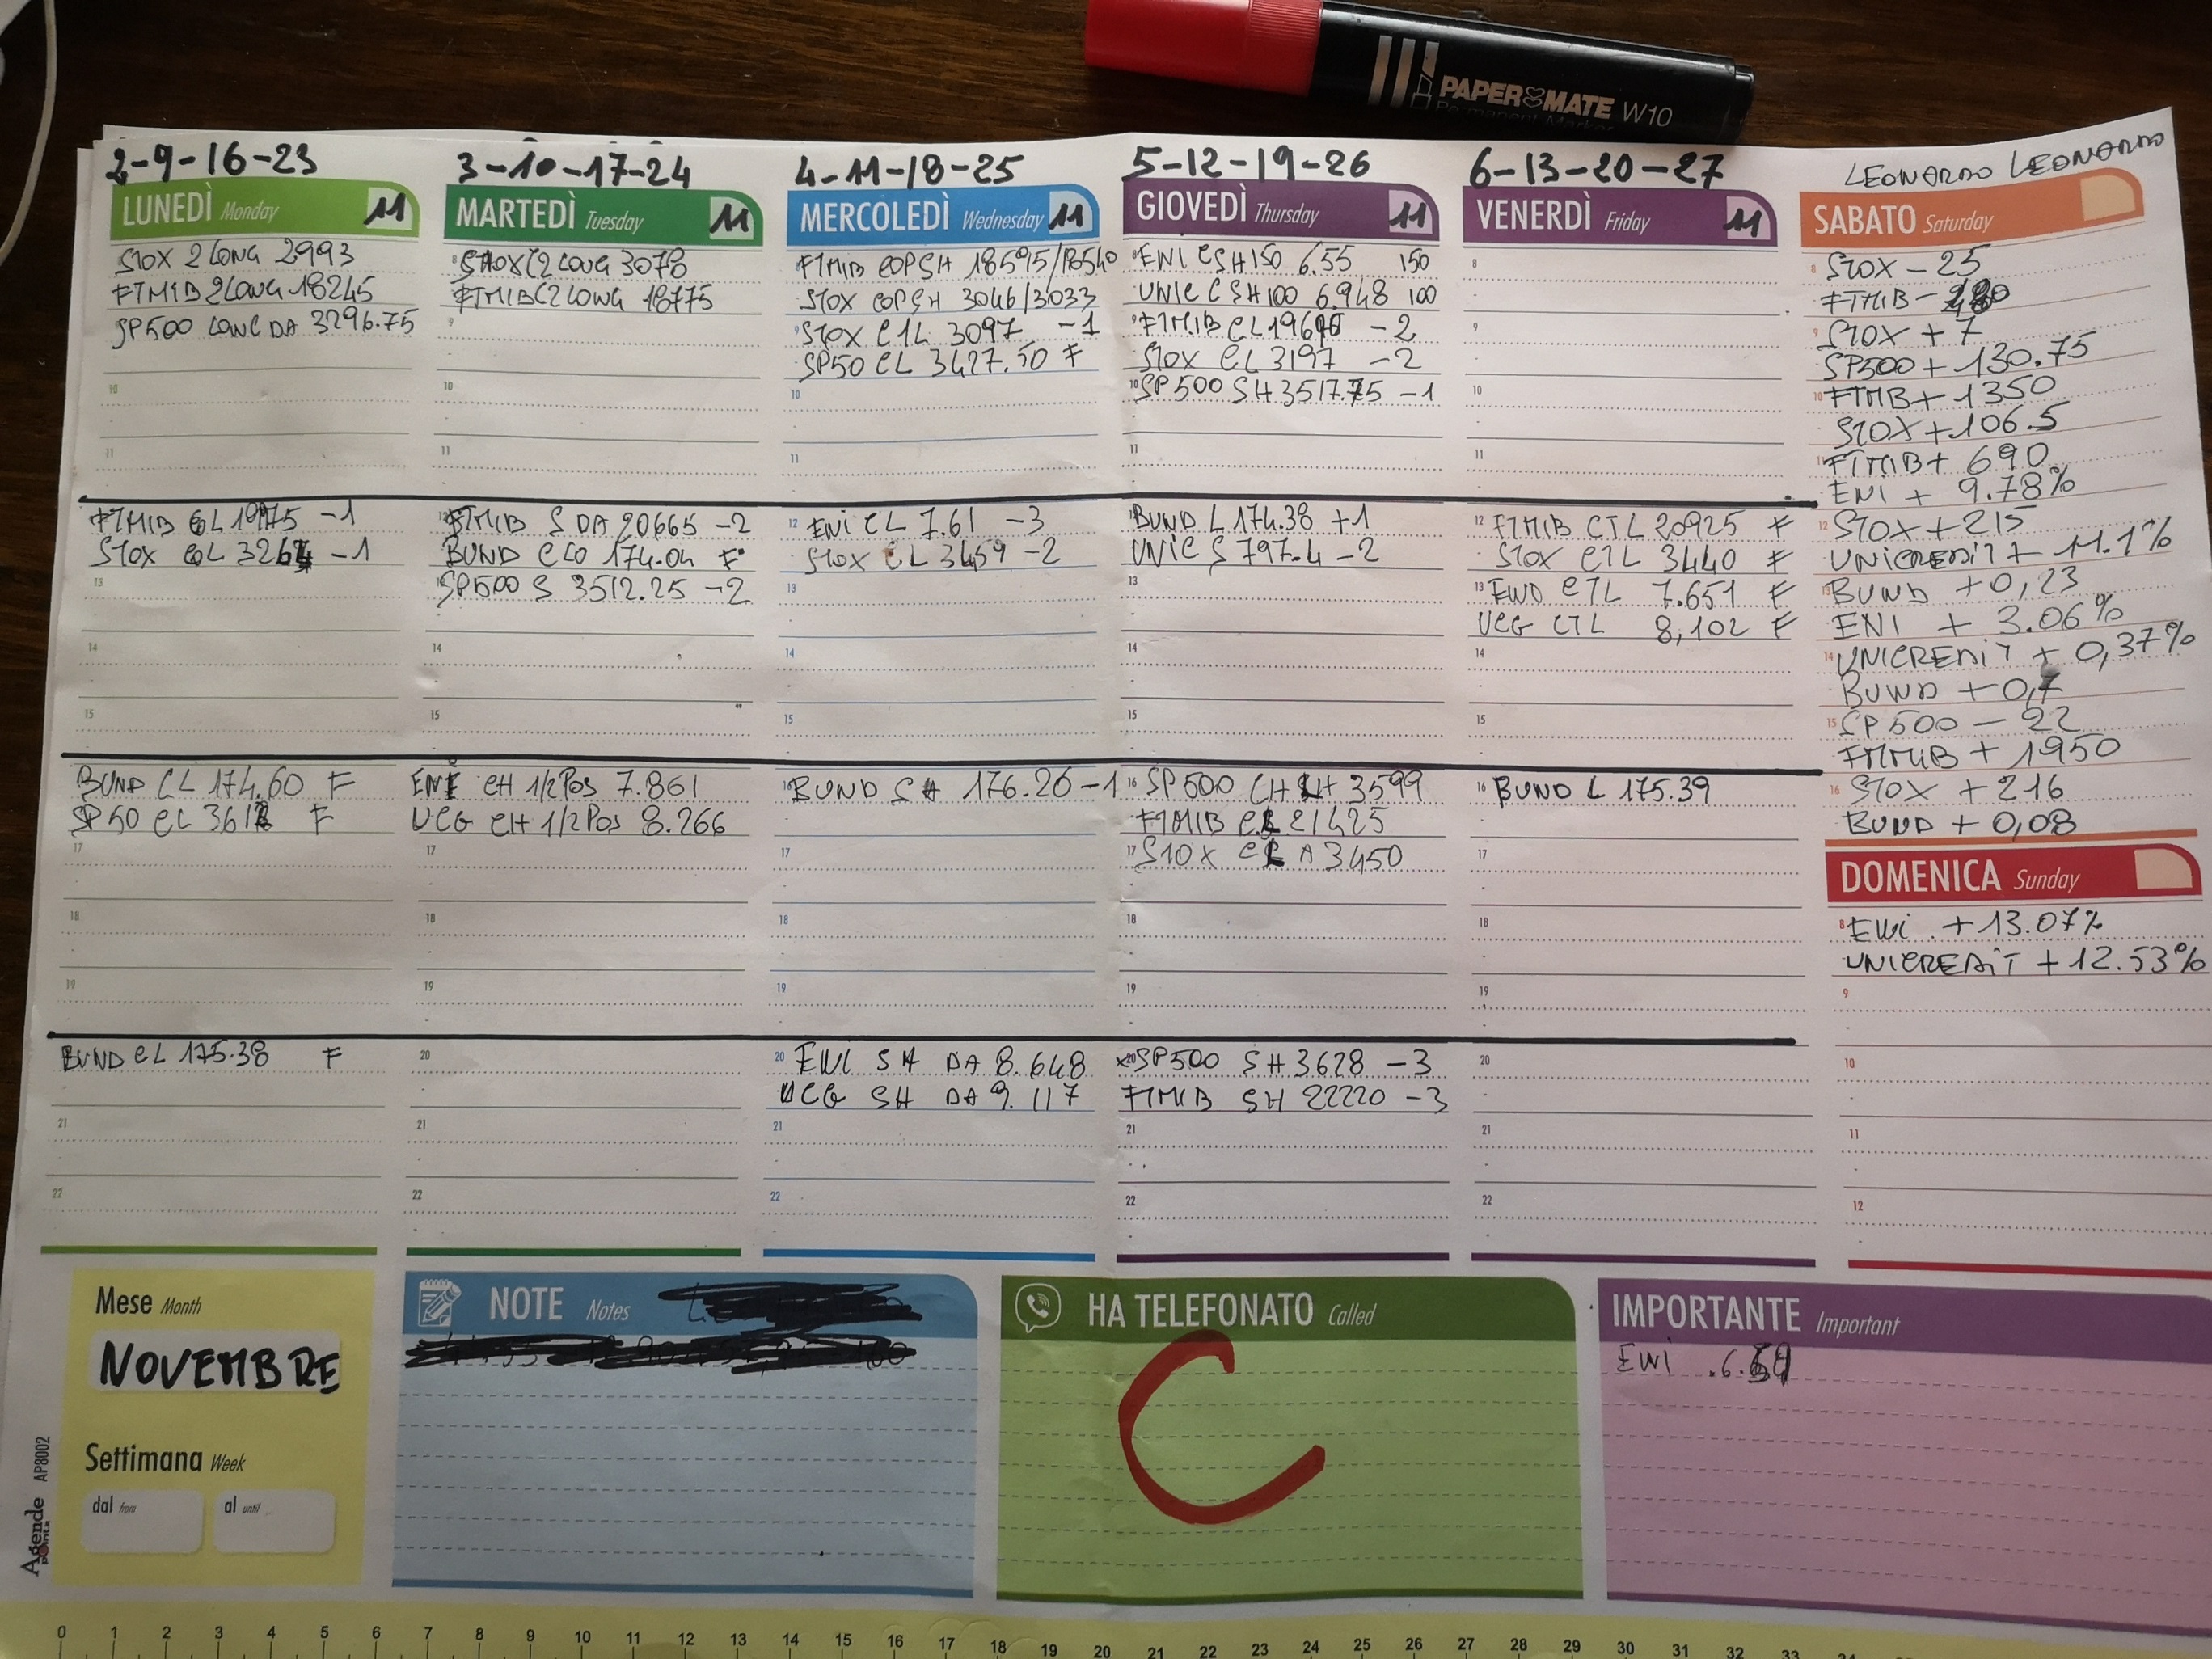 PAPER MATE W10
Permanent Marker
2-9-16-23
LUNEDÌ Monday 11
STOX 2 LONG 2993
FTMIB 2 LONG 18245
SP500 LONG DA 3296.75
10
11
FTMIB -1
STOX -1
13
14
15
BUND CL 174.60 F
SP50 CL F
17
18
19
BUND CL 175.38 F
21
22
3-10-17-24
MARTEDÌ Tuesday 11
8 STOX C2 LONG 3078
FTMIB C2 LONG 18775
9
10
11
FTMIB S DA 20665 -2
BUND 174.04 F
SP500 S 3512.25 -2
14
15
CH 1/2 POS 7.861
UCG CH 1/2 POS 8.266
17
18
19
20
21
22
4-11-18-25
MERCOLEDÌ Wednesday 11
FTMIB COP SH 18595/18540
STOX COP SH 3046/3033
9 STOX C1L 3097 -1
SP50 CL 3427.50 F
10
11
12 ENI CL 7.61 -3
STOX CL 3459 -2
13
14
15
BUND SH 176.26 -1
17
18
19
20 ENI SH DA 8.648
UCG SH DA 9.117
21
22
5-12-19-26
GIOVEDÌ Thursday 11
8 ENI C SH 150 6.55 150
UNIC C SH 100 6.948 100
9 FTMIB CL -2
STOX CL 3197 -2
10 SP500 SH 3517.75 -1
11
BUND L 174.38 +1
UNIC S 797.4 -2
13
14
15
16 SP500 CH 3599
FTMIB 21425
17 STOX A 3450
18
19
20 SP500 SH 3628 -3
FTMIB SH 22220 -3
21
22
6-13-20-27
VENERDÌ Friday 11
8
9
10
11
12 FTMIB CTL 20925 F
STOX CTL 3440 F
13 CTL 7.651 F
UCG CTL 8,102 F
14
15
16 BUND L 175.39
17
18
19
20
21
22
LEONARDO LEONARDO
SABATO Saturday
8 STOX - 25
FTMIB -
9 STOX + 7
SP500 + 130.75
10 FTMIB + 1350
STOX + 106.5
11 FTMIB + 690
ENI + 9.78%
12 STOX + 215
UNICREDIT + 11.1%
13 BUND + 0,23
ENI + 3.06%
14 UNICREDIT + 0,37%
BUND +
15 SP500 - 22
FTMIB + 1950
16 STOX + 216
BUND + 0,08
DOMENICA Sunday
8 ENI + 13.07%
UNICREDIT + 12.53%
9
10
11
12
Mese Month
NOVEMBRE
Settimana Week
dal from
al until
Agende Point.it AP8002
NOTE Notes
HA TELEFONATO Called
C
IMPORTANTE Important
ENI
0 1 2 3 4 5 6 7 8 9 10 11 12 13 14 15 16 17 18 19 20 21 22 23 24 25 26 27 28 29 30 31 32 33